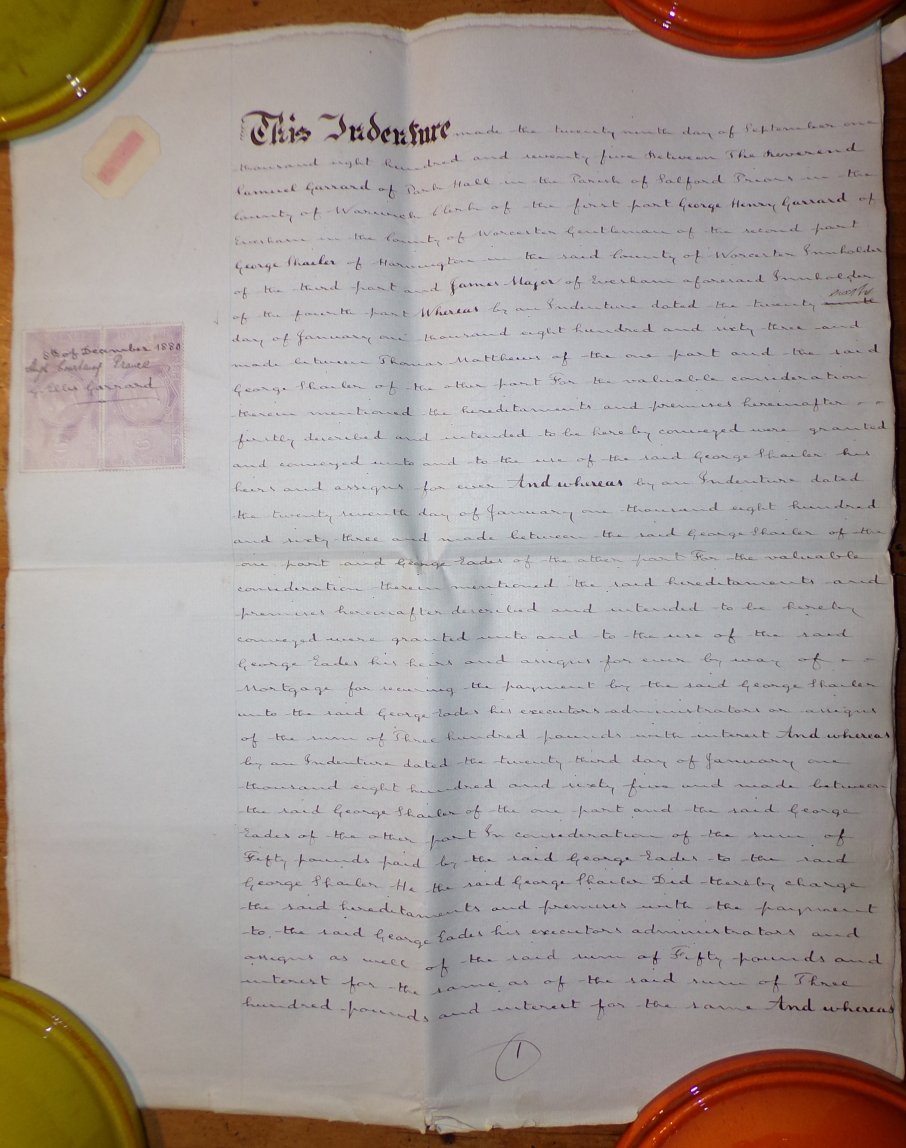 This Indenture made the twenty ninth day of September one
thousand eight hundred and seventy five Between The Reverend
Samuel Garrard of Park Hall in the Parish of Salford Priors in the
County of Warwick Clerk of the first part George Henry Garrard of
Evesham in the County of Worcester Gentleman of the second part
George Shailer of Harvington in the said County of Worcester Innholder
of the third part and James Major of Evesham aforesaid Innholder
of the fourth part Whereas by an Indenture dated the twenty sixth
day of January one thousand eight hundred and sixty three and
made between Thomas Matthews of the one part and the said
George Shailer of the other part For the valuable consideration
therein mentioned the hereditaments and premises hereinafter
firstly described and intended to be hereby conveyed were granted
and conveyed unto and to the use of the said George Shailer his
heirs and assigns for ever And whereas by an Indenture dated
the twenty seventh day of January one thousand eight hundred
and sixty three and made between the said George Shailer of the
one part and George Eades of the other part For the valuable
consideration therein mentioned the said hereditaments and
premises hereinafter described and intended to be hereby
conveyed were granted unto and to the use of the said
George Eades his heirs and assigns for ever by way of
Mortgage for securing the payment by the said George Shailer
unto the said George Eades his executors administrators or assigns
of the sum of Three hundred pounds with interest And whereas
by an Indenture dated the twenty third day of January one
thousand eight hundred and sixty five and made between
the said George Shailer of the one part and the said George
Eades of the other part In consideration of the sum of
Fifty pounds paid by the said George Eades to the said
George Shailer He the said George Shailer Did thereby charge
the said hereditaments and premises with the payment
to the said George Eades his executors administrators and
assigns as well of the said sum of Fifty pounds and
interest for the same as of the said sum of Three
hundred pounds and interest for the same And whereas
1
8th of December 1880
Ellis Garrard